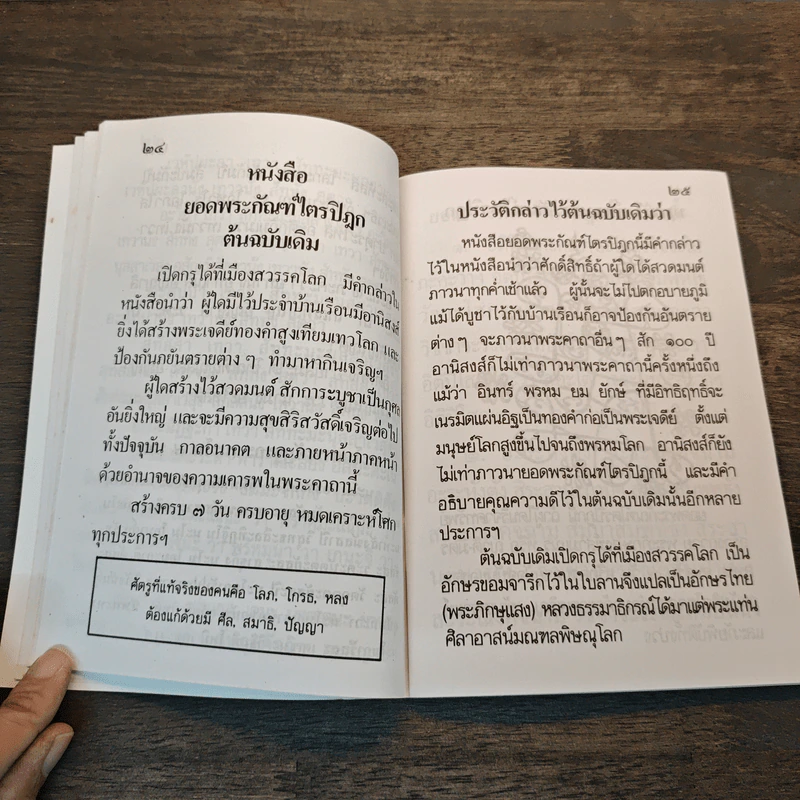 ๒๔
หนังสือ
ยอดพระกัณฑ์ไตรปิฎก
ต้นฉบับเดิม
เปิดกรุได้ที่เมืองสวรรคโลก มีคำกล่าวใน
หนังสือนำว่า ผู้ใดมีไว้ประจำบ้านเรือนมีอานิสงส์
ยิ่งได้สร้างพระเจดีย์ทองคำสูงเทียมเทวโลก และ
ป้องกันภยันตรายต่าง ๆ ทำมาหากินเจริญฯ
ผู้ใดสร้างไว้สวดมนต์ สักการะบูชาเป็นกุศล
อันยิ่งใหญ่ และจะมีความสุขสิริสวัสดิ์เจริญต่อไป
ทั้งปัจจุบัน กาลอนาคต และภายหน้าภาคหน้า
ด้วยอำนาจของความเคารพในพระคาถานี้
สร้างครบ ๗ วัน ครบอายุ หมดเคราะห์โศก
ทุกประการฯ
ศัตรูที่แท้จริงของคนคือ โลภ, โกรธ, หลง
ต้องแก้ด้วยมี ศีล, สมาธิ, ปัญญา
๒๕
ประวัติกล่าวไว้ต้นฉบับเดิมว่า
หนังสือยอดพระกัณฑ์ไตรปิฎกนี้มีคำกล่าว
ไว้ในหนังสือนำว่าศักดิ์สิทธิ์ถ้าผู้ใดได้สวดมนต์
ภาวนาทุกค่ำเช้าแล้ว ผู้นั้นจะไม่ไปตกอบายภูมิ
แม้ได้บูชาไว้กับบ้านเรือนก็อาจป้องกันอันตราย
ต่าง ๆ จะภาวนาพระคาถาอื่น ๆ สัก ๑๐๐ ปี
อานิสงส์ก็ไม่เท่าภาวนาพระคาถานี้ครั้งหนึ่งถึง
แม้ว่า อินทร์ พรหม ยม ยักษ์ ที่มีอิทธิฤทธิ์จะ
เนรมิตแผ่นอิฐเป็นทองคำก่อเป็นพระเจดีย์ ตั้งแต่
มนุษย์โลกสูงขึ้นไปจนถึงพรหมโลก อานิสงส์ก็ยัง
ไม่เท่าภาวนายอดพระกัณฑ์ไตรปิฎกนี้ และมีคำ
อธิบายคุณความดีไว้ในต้นฉบับเดิมนั้นอีกหลาย
ประการฯ
ต้นฉบับเดิมเปิดกรุได้ที่เมืองสวรรคโลก เป็น
อักษรขอมจารึกไว้ในใบลานจึงแปลเป็นอักษรไทย
(พระภิกษุแสง) หลวงธรรมาธิกรณ์ได้มาแต่พระแท่น
ศิลาอาสน์มณฑลพิษณุโลก